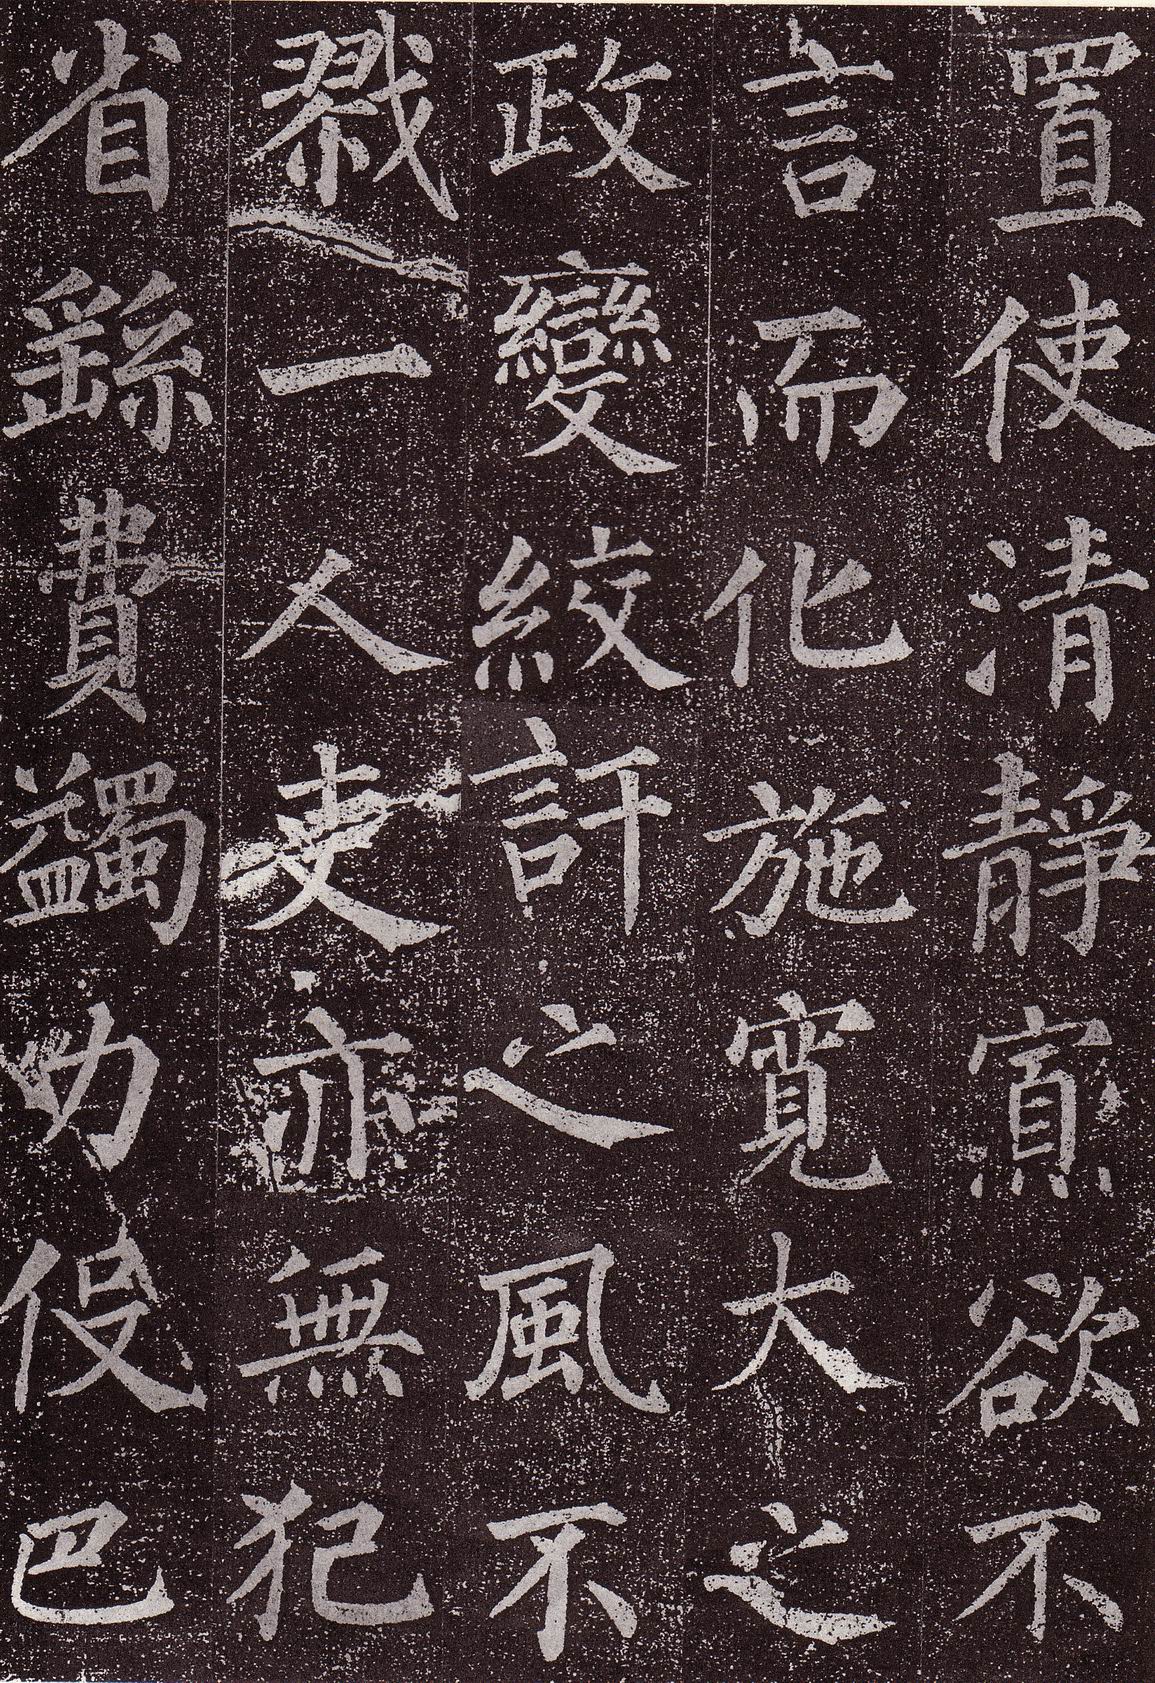 置使清静寡欲不
言而化施寬大之
政變絞訐之風不
戮一人吏亦無犯
省繇費蠲力役巴